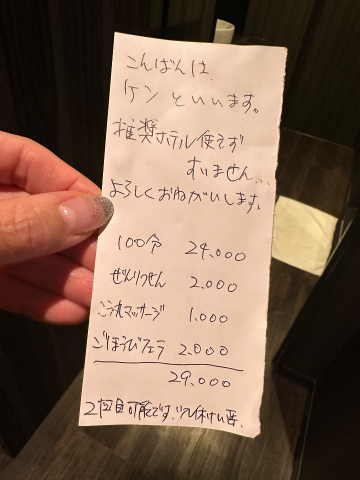 こんばんは、
ケンといいます。
推奨ホテル使えず
すいません...
よろしくおねがいします。
100分 24.000
ぜんりつせん 2.000
こう丸マッサージ 1.000
ごほうびフェラ 2.000
29.000
2回目可能です。